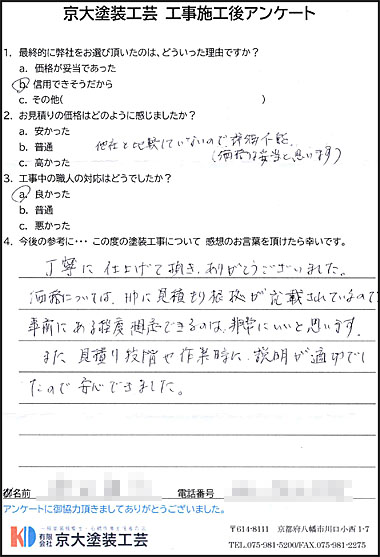 京大塗装工芸 工事施工後アンケート
1．最終的に弊社をお選び頂いたのは、どういった理由ですか？
a．価格が妥当であった
b．信用できそうだから
c．その他( )
2．お見積りの価格はどのように感じましたか？
a．安かった
b．普通
c．高かった
他社と比較していないので評価不能。
(価格は妥当と思います)
3．工事中の職人の対応はどうでしたか？
a．良かった
b．普通
c．悪かった
4．今後の参考に・・・ この度の塗装工事について 感想のお言葉を頂けたら幸いです。
丁寧に仕上げて頂き、ありがとうございました。
価格については、HPに見積り価格が記載されているので
事前にある程度想定できるのは、非常にいいと思います。
また、見積り段階や作業時に、説明が適切でし
たので安心できました。
御名前 電話番号
アンケートに御協力頂きましてありがとうございました。
KD 有限会社 京大塗装工芸
〒614-8111 京都府八幡市川口小西1-7
TEL.075-981-5200/FAX.075-981-2275